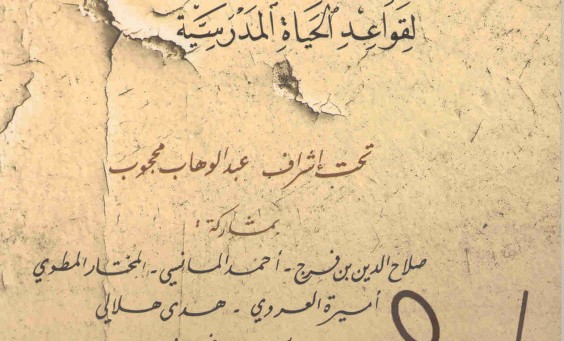 لِقَوَاعِدِ الحَيَاةِ المَدْرَسِيَّةِ
تحت إشراف عبد الوهاب محجوب
بمشاركة :
صلاح الدين بن فرج - أحمد المانسي - المختار المطوي
أميرة العروي - هدى هلالي